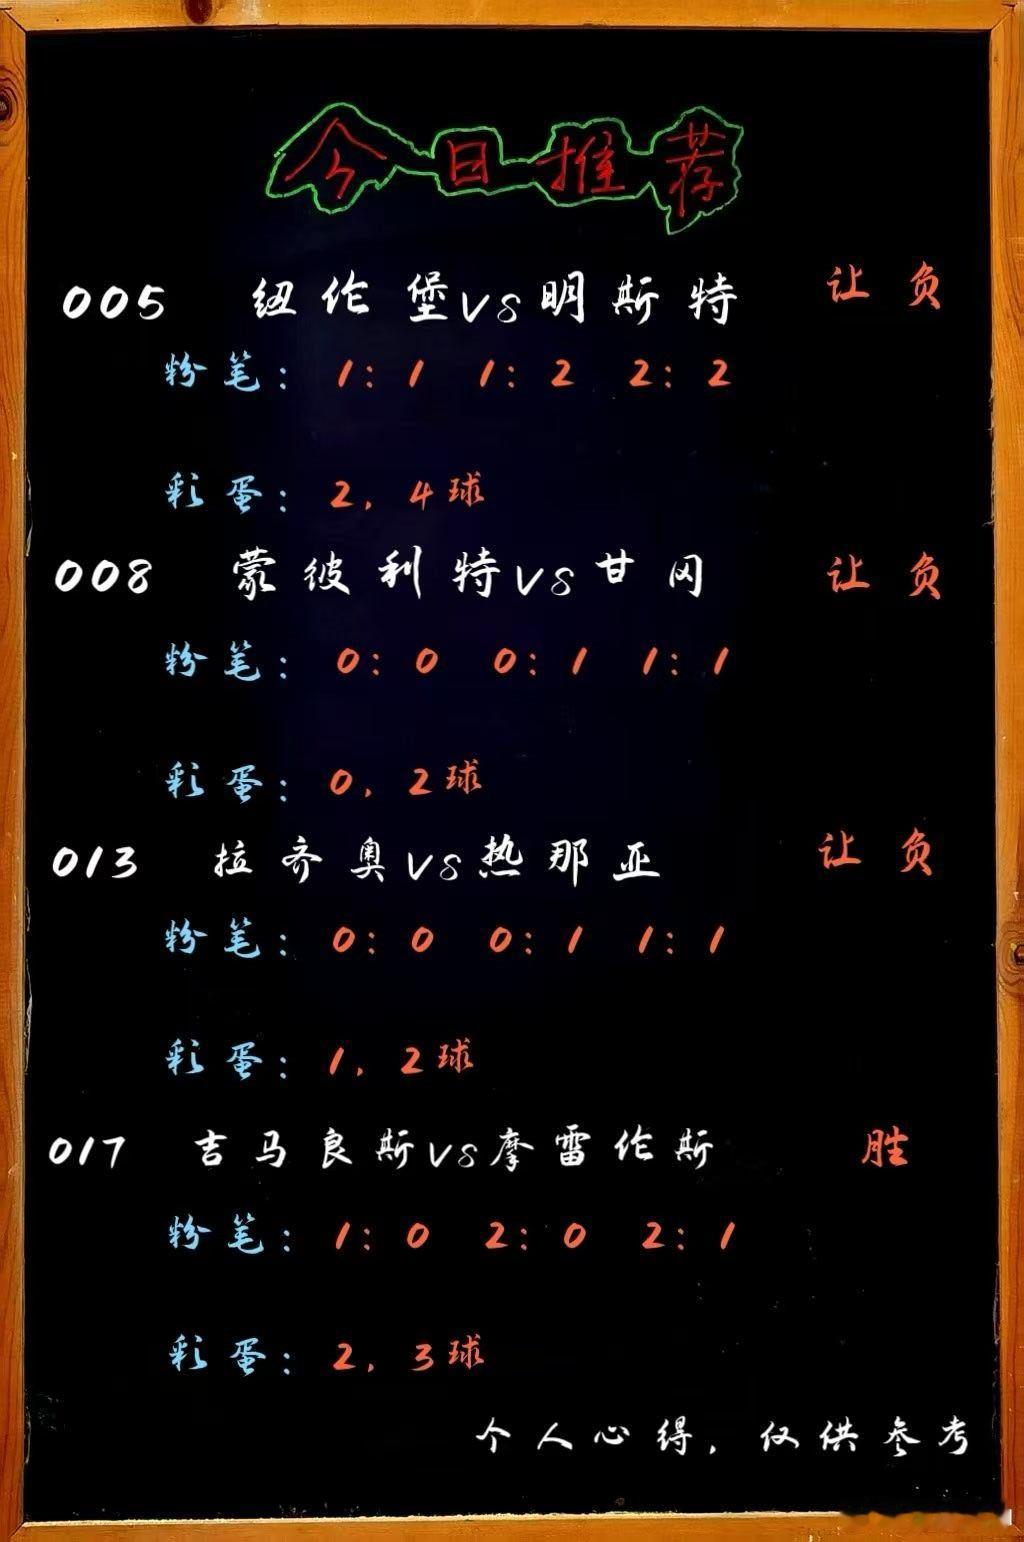 今日推荐
005 纽伦堡VS明斯特 让负
粉笔: 1:1 1:2 2:2
彩蛋: 2,4球
008 蒙彼利特VS甘冈 让负
粉笔: 0:0 0:1 1:1
彩蛋: 0,2球
013 拉齐奥VS热那亚 让负
粉笔: 0:0 0:1 1:1
彩蛋: 1,2球
017 吉马良斯VS摩雷伦斯 胜
粉笔: 1:0 2:0 2:1
彩蛋: 2,3球
个人心得,仅供参考